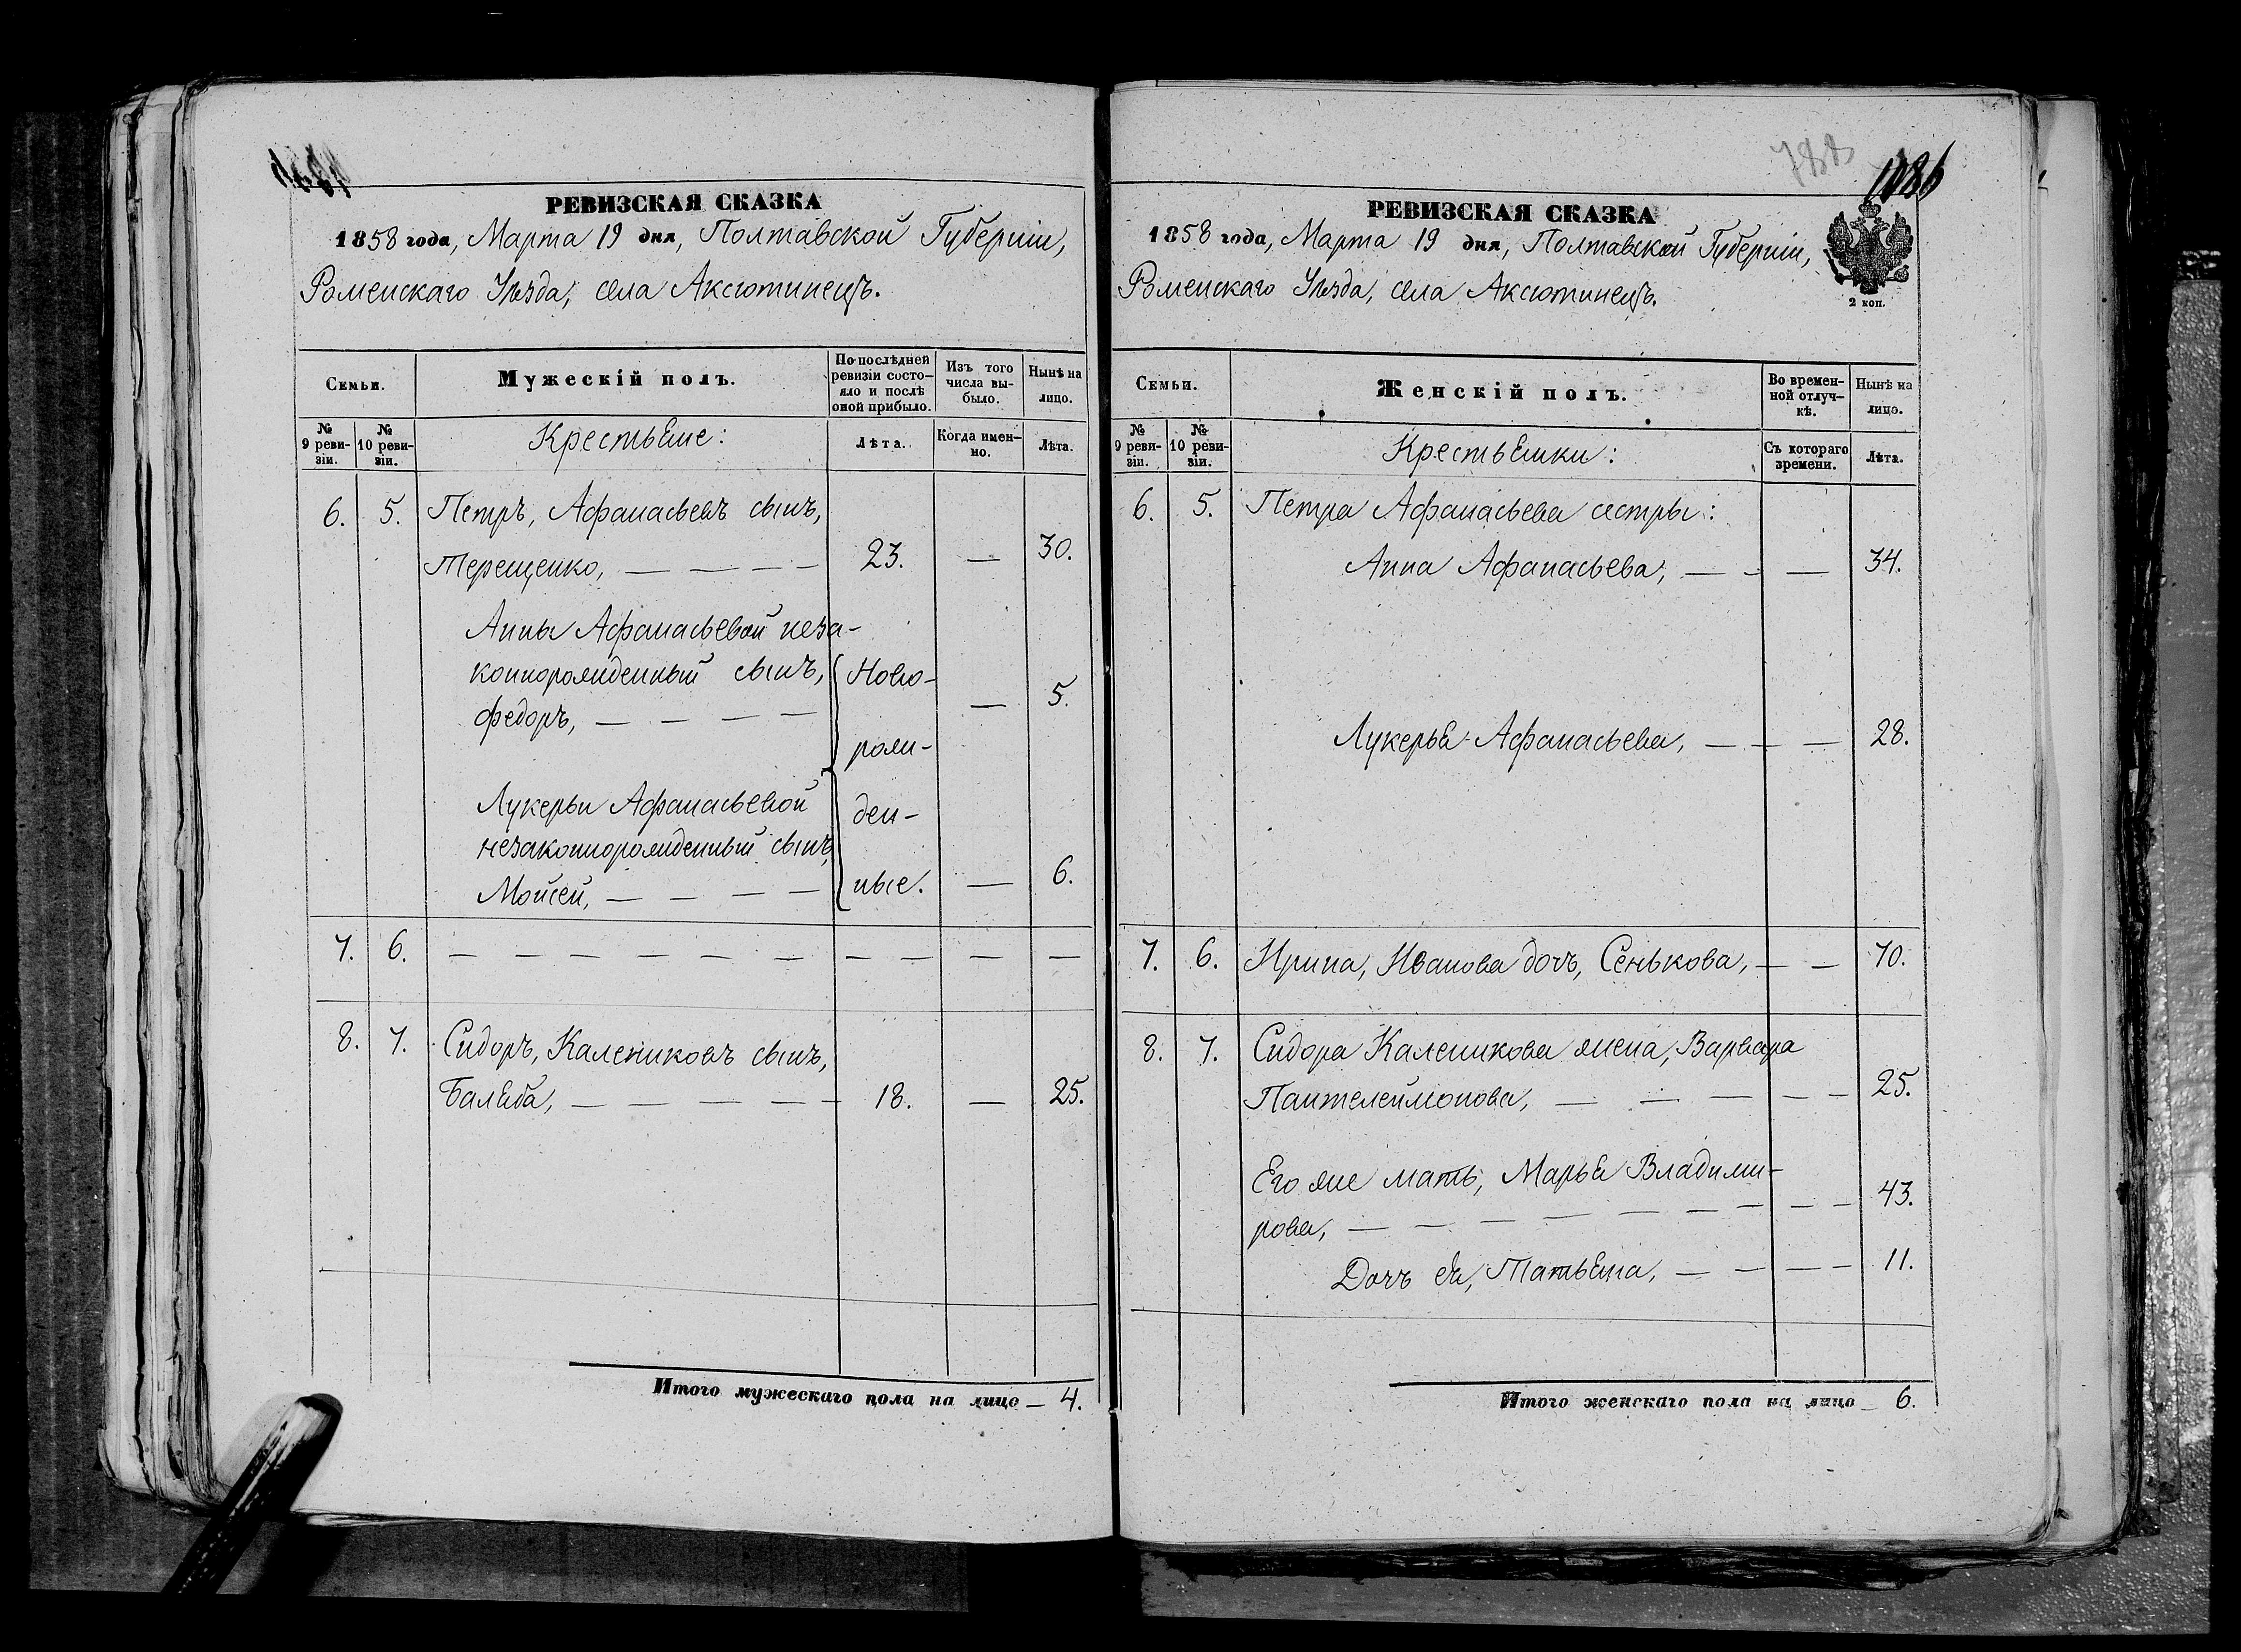 РЕВИЗСКАЯ СКАЗКА
1858 года, Марта 19 дня, Полтавской Губерніи,
Роменскаго Уѣзда, села Аксютинецъ.
Семьи.
Мужескій полъ.
По последней ревизіи состояло и послѣ оной прибыло.
Изъ того числа выбыло.
Нынѣ на лицо.
№ 9 ревизіи.
№ 10 ревизіи.
Крестьяне:
Лѣта.
Когда именно.
Лѣта.
6. 5. Петръ, Афанасьевъ сынъ,
Терещенко, — — — — 23. — 30.
Анны Афанасьевой неза-
коннорожденный сынъ, Ново-
Федоръ, — — — — — 5.
рож-
Лукерьи Афанасьевой ден-
незаконнорожденный сынъ,
Мойсей, — — — — ные. — 6.
7. 6. — — — — — — — — — — —
8. 7. Сидоръ, Калениковъ сынъ,
Баляба, — — — — — 18. — 25.
Итого мужескаго пола на лицо — 4.
1086
РЕВИЗСКАЯ СКАЗКА
1858 года, Марта 19 дня, Полтавской Губерніи,
Роменскаго Уѣзда, села Аксютинецъ.
2 коп.
Семьи.
Женскій полъ.
Во временной отлучкѣ.
Нынѣ на лицо.
№ 9 ревизіи.
№ 10 ревизіи.
Крестьянки:
Съ котораго времени.
Лѣта.
6. 5. Петра Афанасьева сестры:
Анна Афанасьева, — — — 34.
Лукерья Афанасьева, — — — 28.
7. 6. Ирина, Иванова дочь, Сенькова, — — 70.
8. 7. Сидора Каленикова жена, Варвара
Пантелеймонова, — — — — — 25.
Его же мать, Марья Владими-
рова, — — — — — — — — — 43.
Дочь ея, Татьяна, — — — — 11.
Итого женскаго пола на лицо — 6.